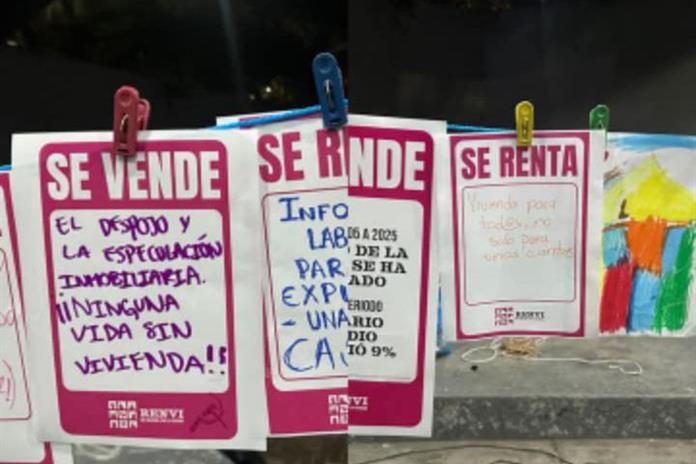 SE VENDE
EL DESPOJO Y
LA ESPECULACIÓN
INMOBILIARIA.
¡¡NINGUNA
VIDA SIN
VIVIENDA!!
RENVI
SE R
INFO
LAB
PAR
EXPU
- UNA
CA
REN
NDE
05 A 2025
DE LA
SE HA
ADO
ERIODO
ARIO
DIO
IÓ 9%
SE RENTA
Vivienda para
tod@s, no
solo para
unos cuantos
RENVI